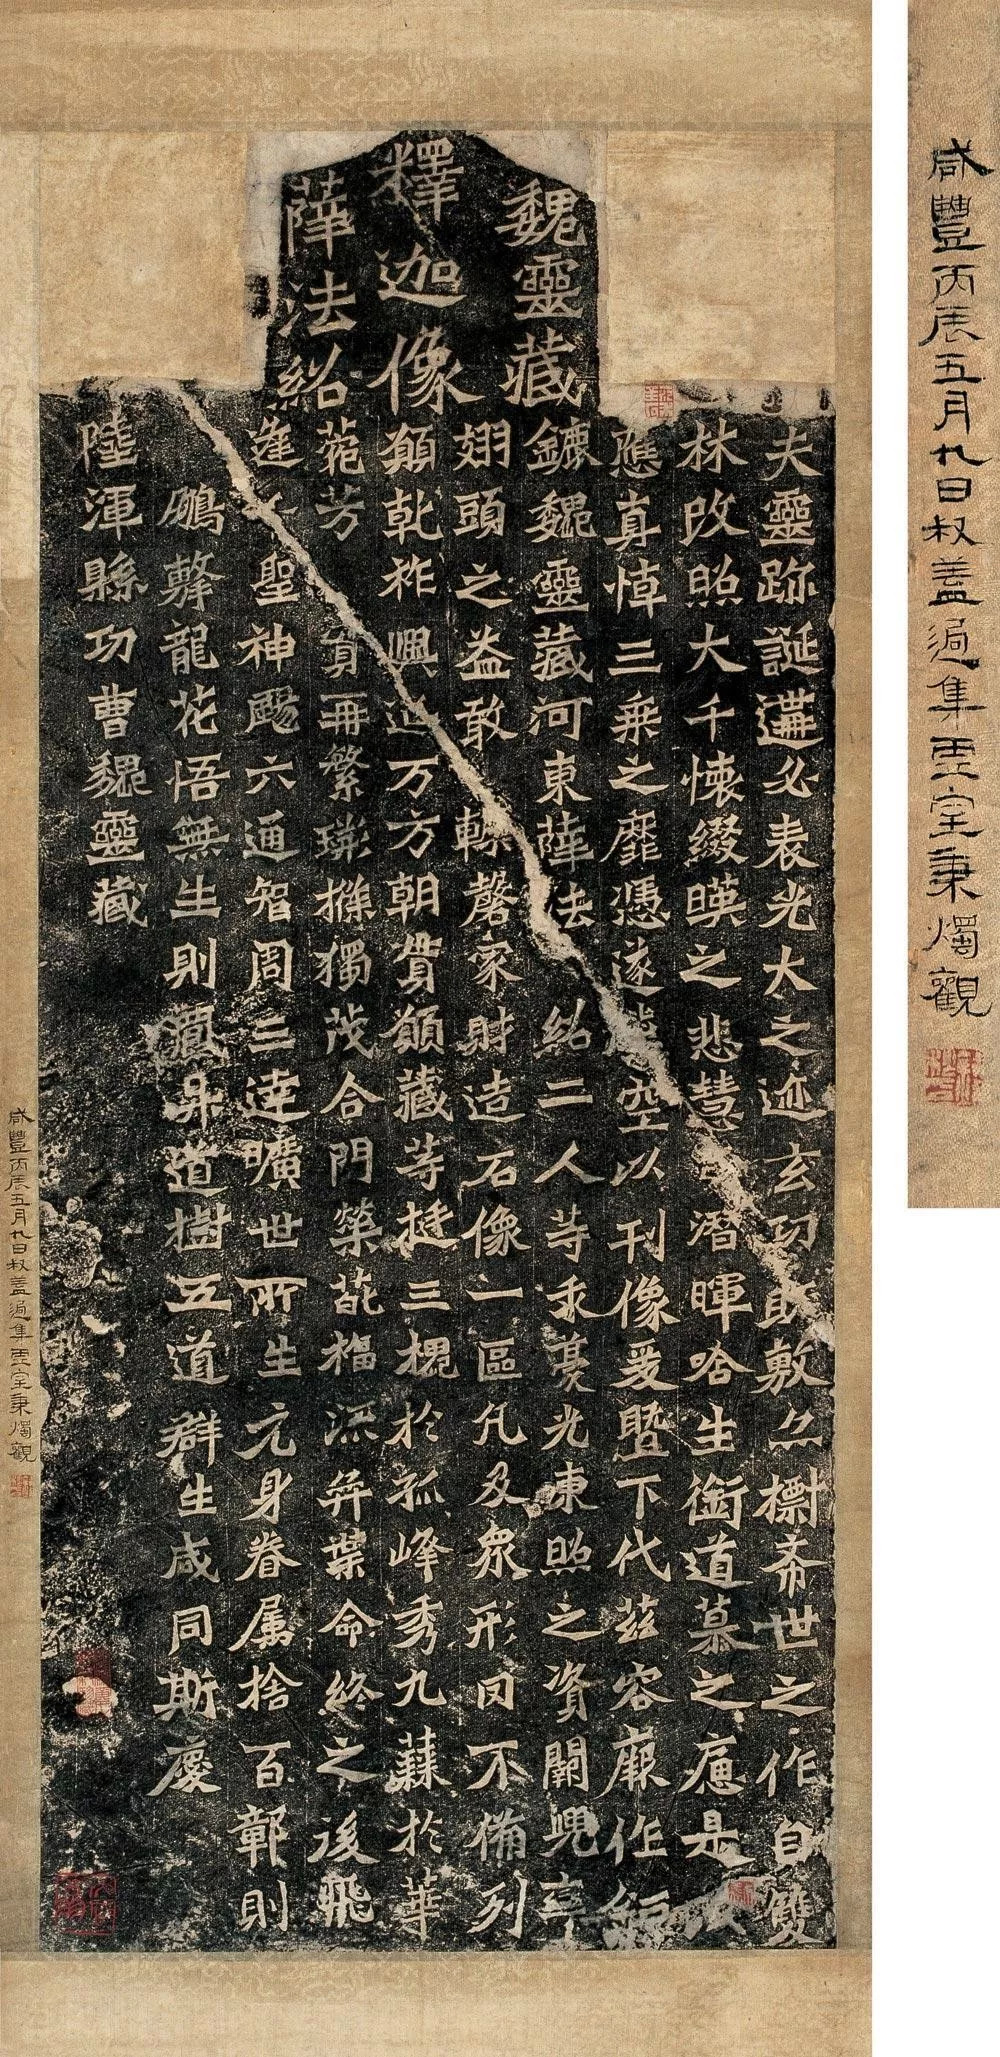 魏靈藏
釋迦像
薛法紹
夫靈跡誕遘必表光大之迹玄功既敷亦標希世之作自雙
林改照大千懷綴暎之悲慧日潛暉哈生銜道慕之愿是以
應真悼三乘之靡憑遂騰空以刊像爰暨下代茲容厥作鉅
鏕魏靈藏河東薛法紹二人等求豪光東照之資闕兜率
翅頭之益敢輒罄家財造石像一區凡及眾形罔不備列
願乾祚興延万方朝貫願藏等挺三槐於孤峰秀九蕀於華
菀芳實再繁荊條獨茂合門榮葩福流奕葉命終之後飛
逢千聖神颺六通智周三達曠世所生元身眷屬捨百鄣則
鵬擊龍花悟無生則鳳昇道樹五道群生咸同斯慶
陸渾縣功曹魏靈藏
咸豐丙辰五月九日叔蓋過集玉室秉燭觀
咸豐丙辰五月九日叔蓋過集玉室秉燭觀